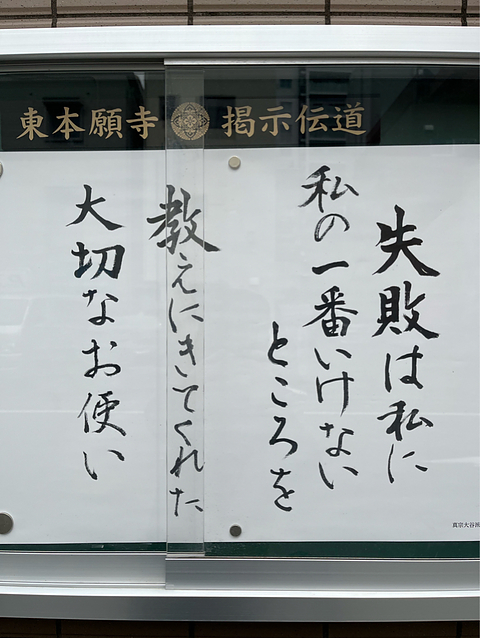 東本願寺 掲示伝道
失敗は私に
私の一番いけない
ところを
教えにきてくれた
大切なお便い
真宗大谷派